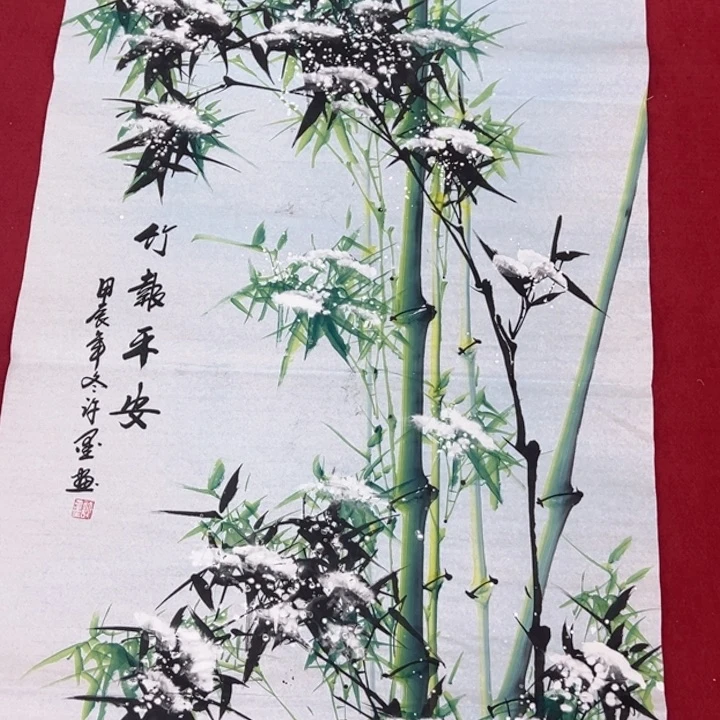 竹報平安
甲辰年冬许墨画